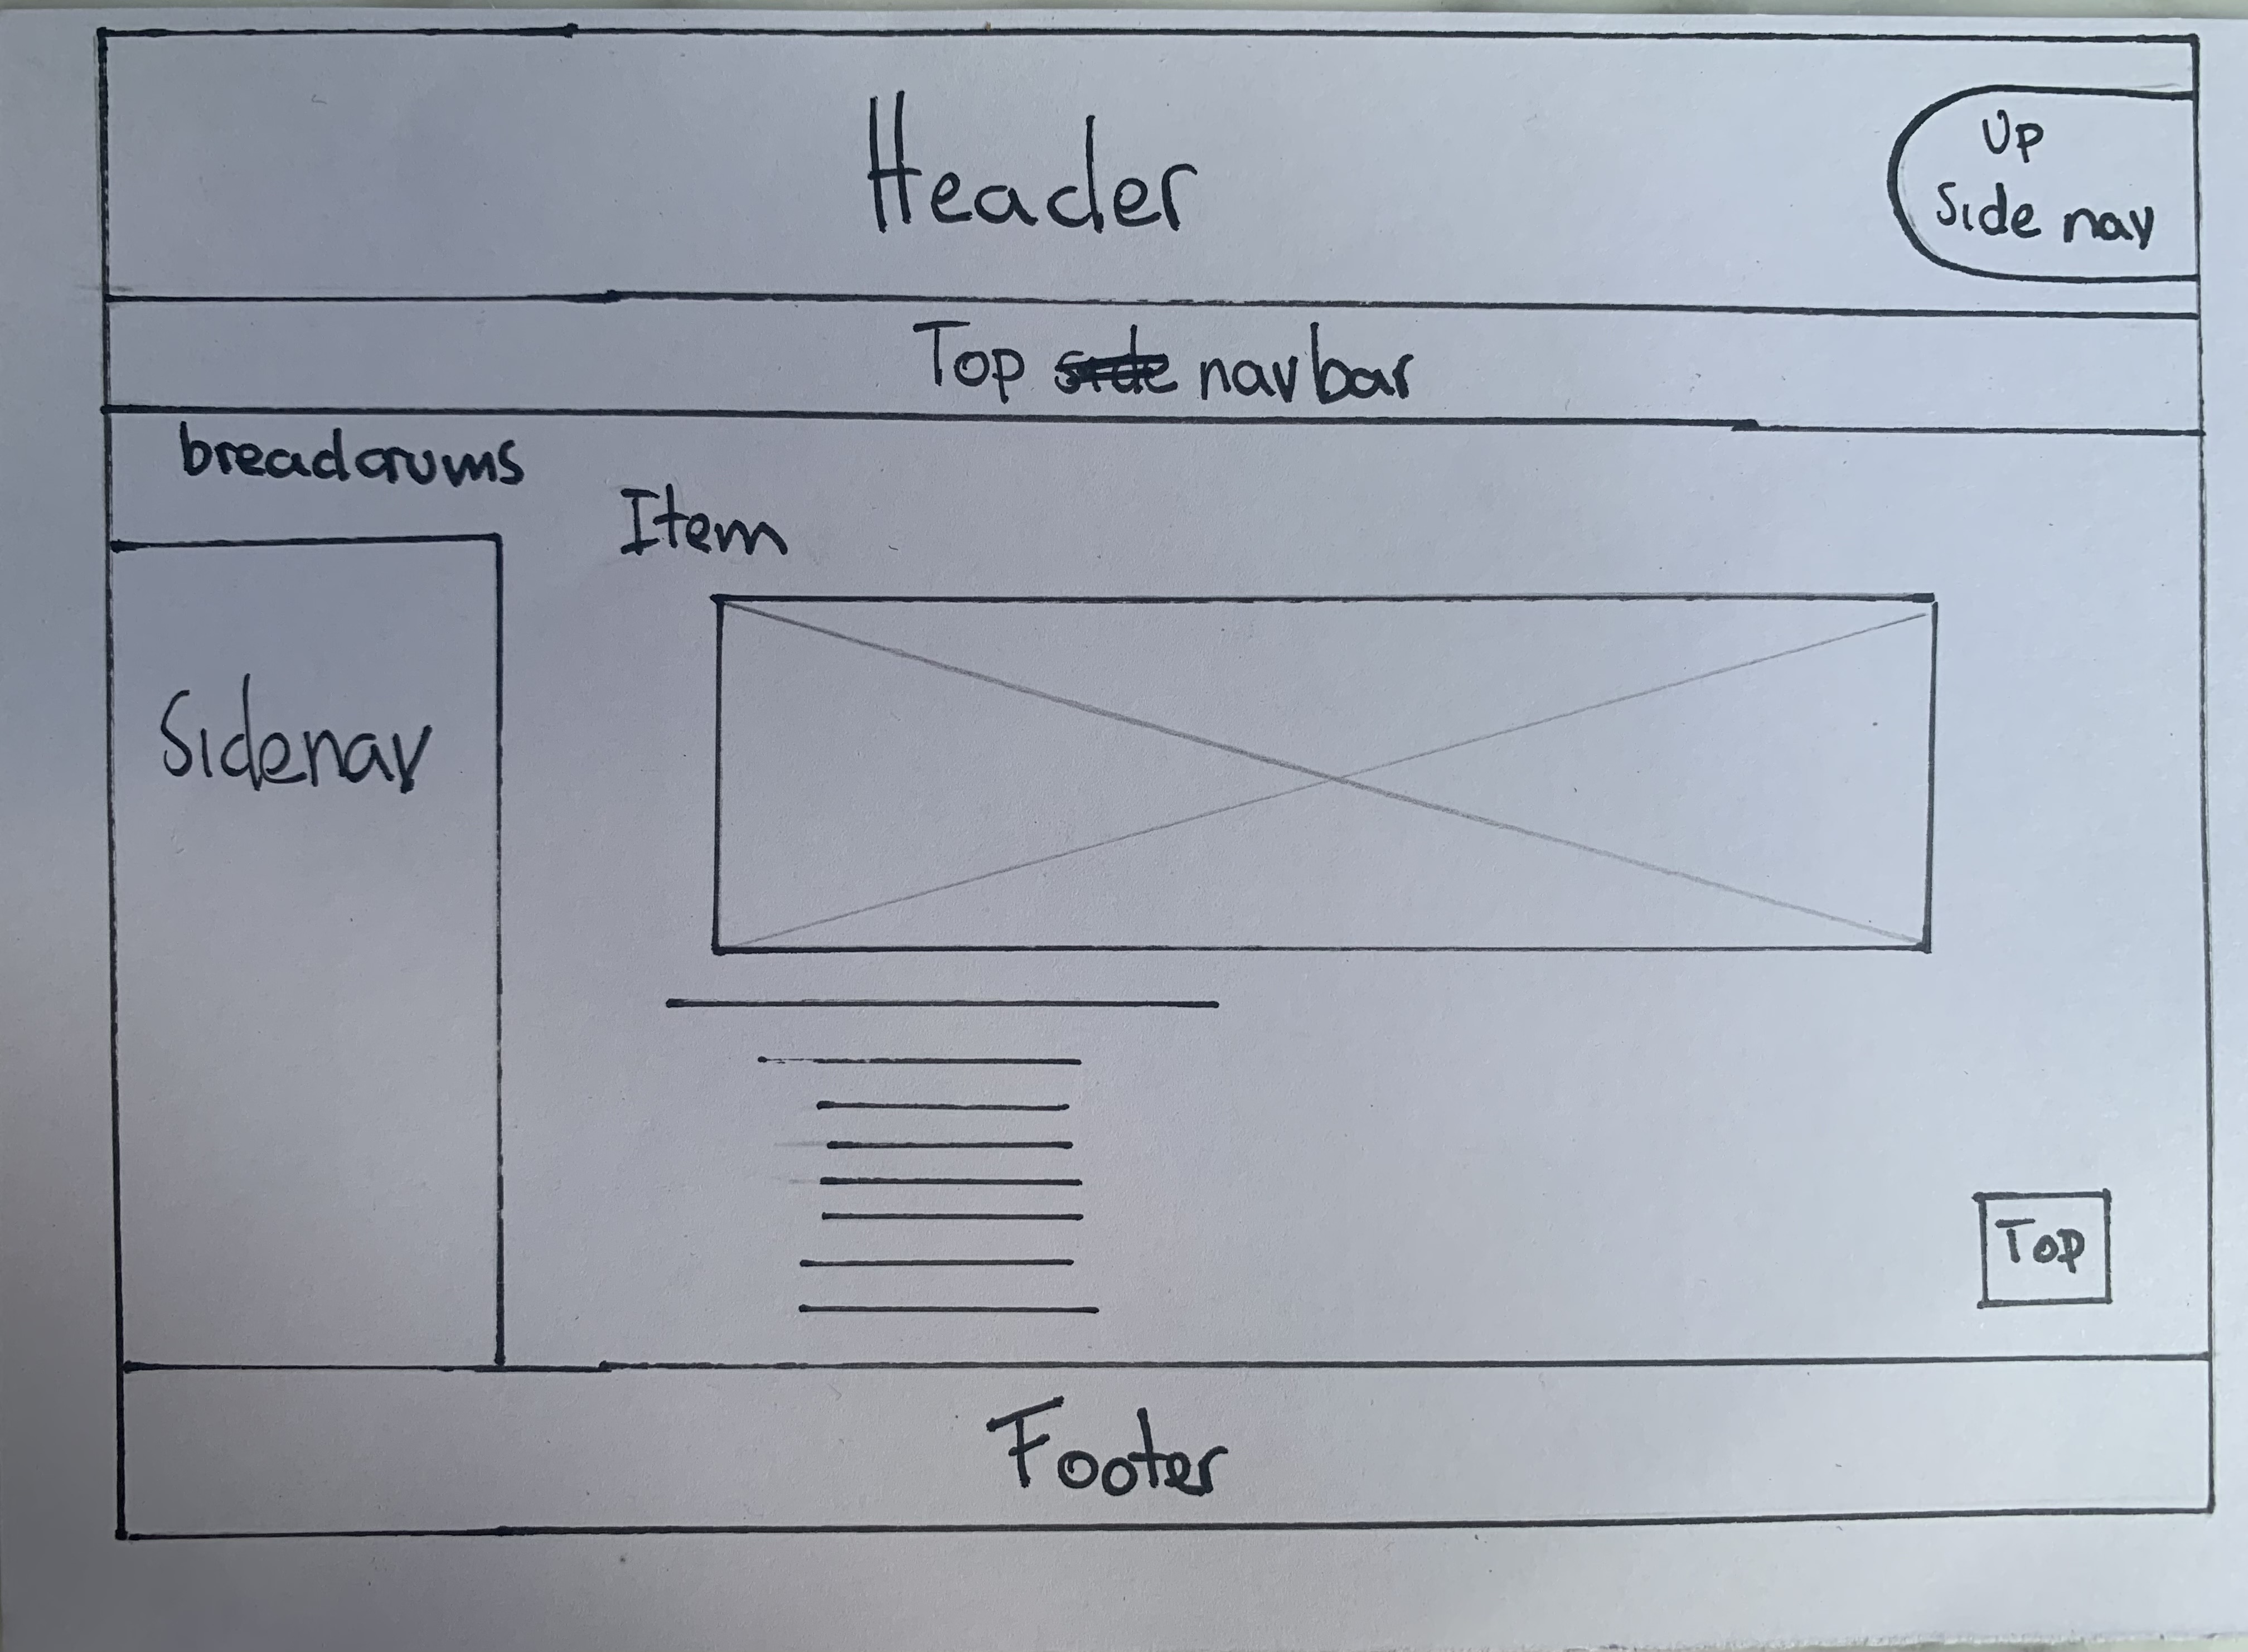 Header
Up
Side nav
Top side navbar
breadcrums
Item
Sidenav
Top
Footer